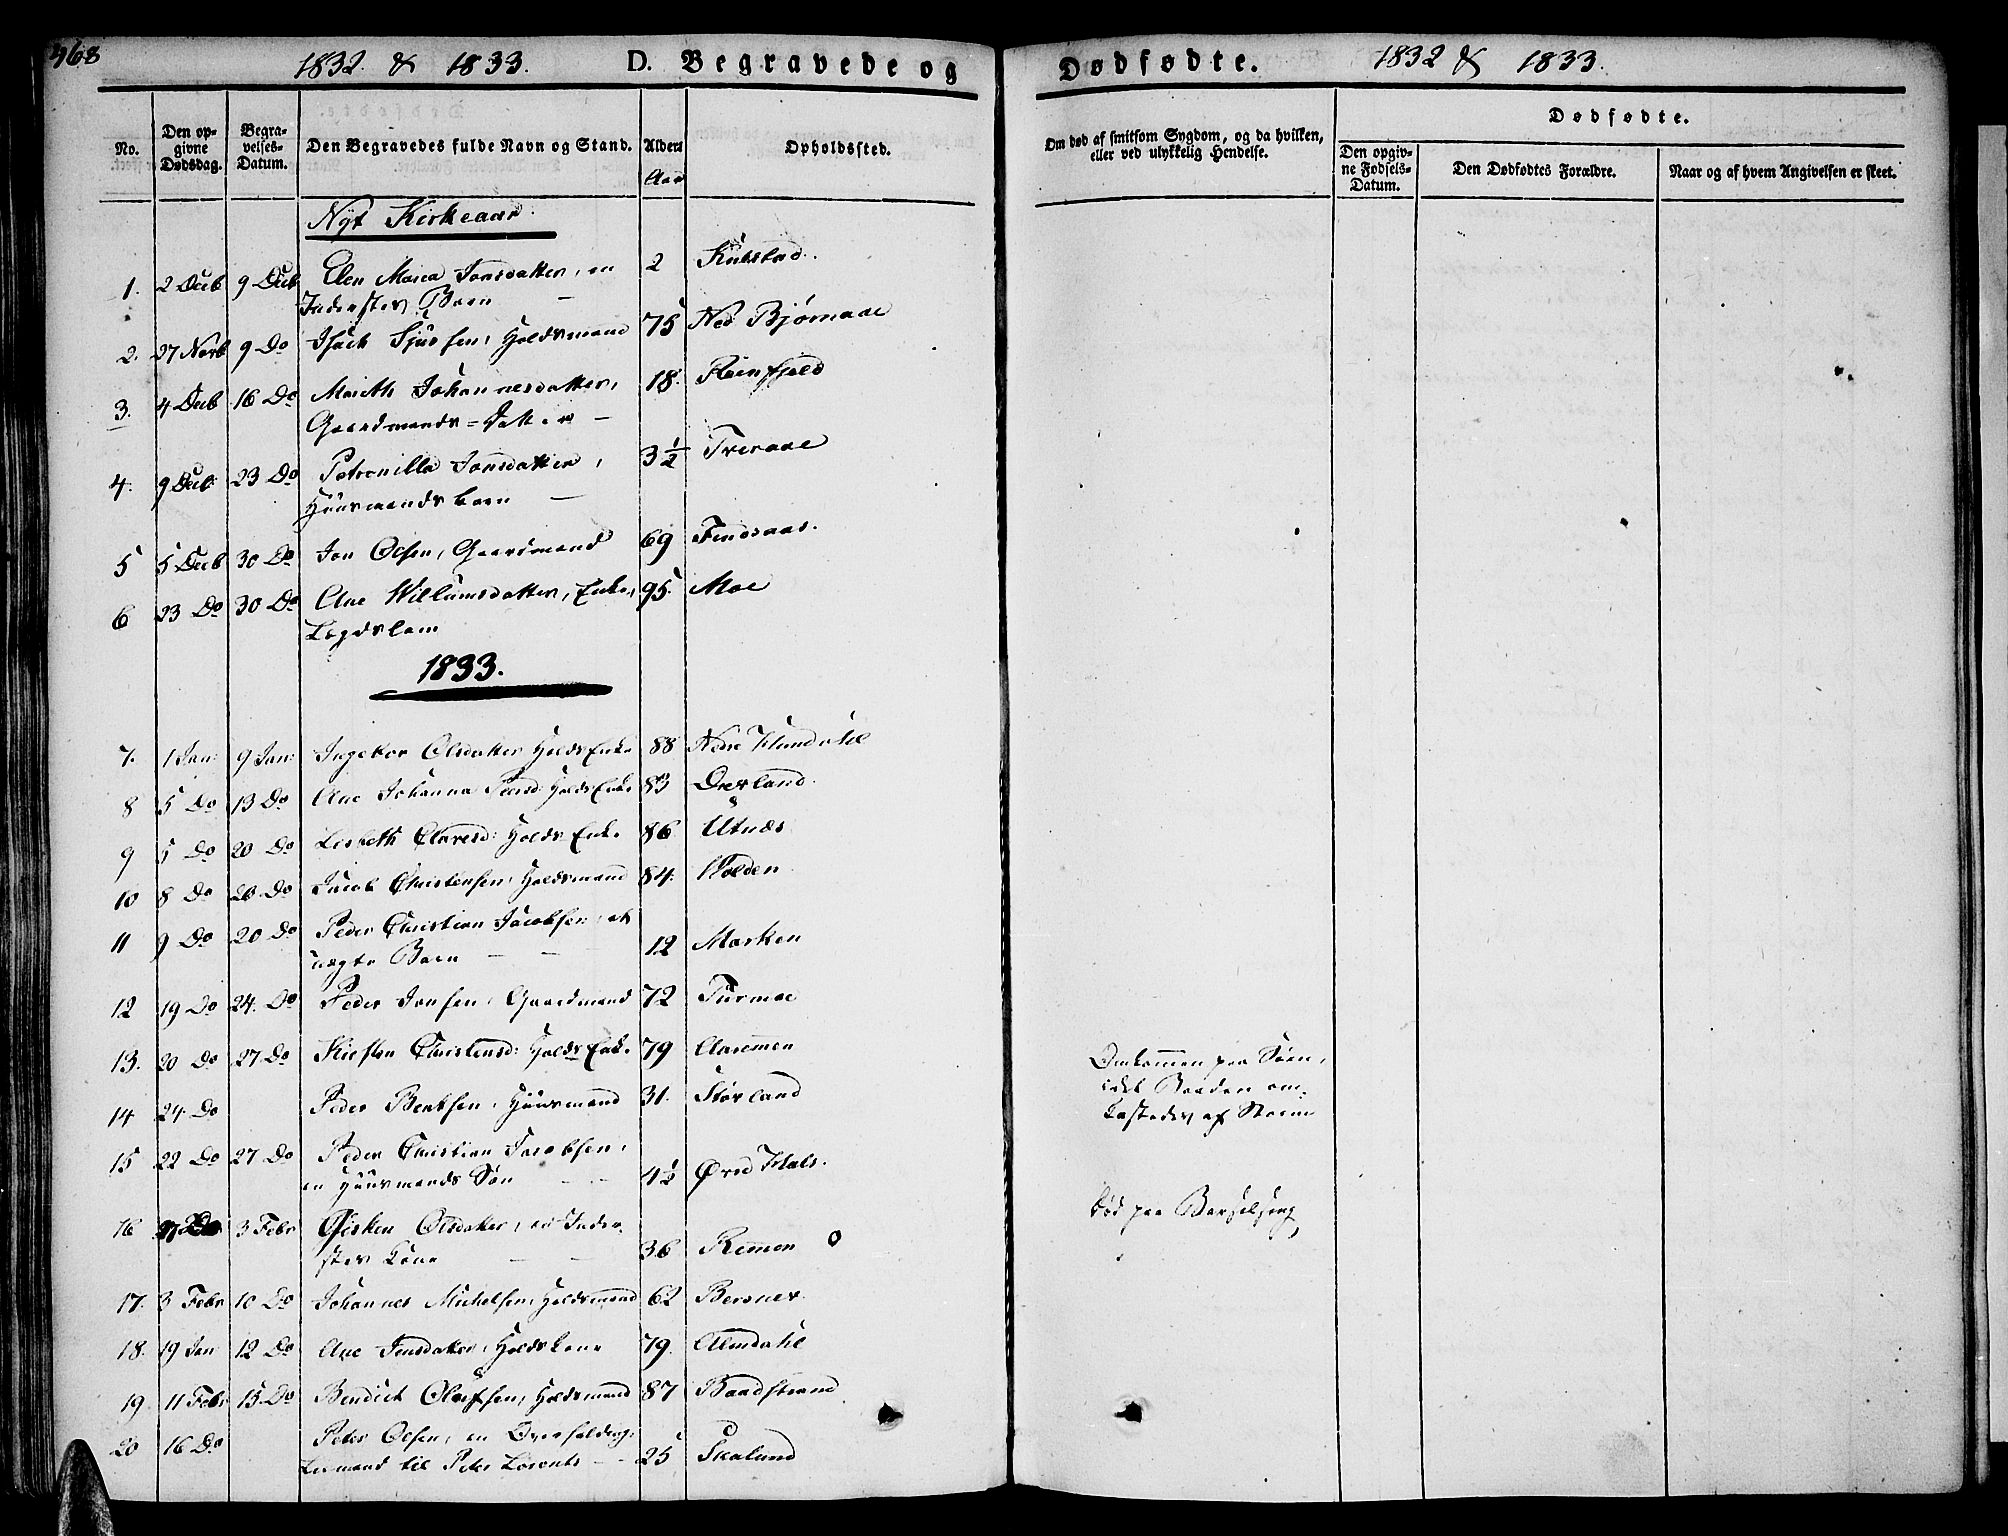 468
1832 & 1833. D. Begravede og Dødfødte. 1832 & 1833.
No. Den opgivne Dødsdag. Begravelses-Datum. Den Begravedes fulde Navn og Stand. Alders Aar Opholdssted.
Om død af smitsom Sygdom, og da hvilken, eller ved ulykkelig Hendelse. Dødfødte.
Den opgivne Fødsels-Datum. Den Dødfødtes Forældre. Naar og af hvem Angivelsen er skeet.
Nyt Kirkeaar.
1. 2 Decb 9 Decb Elen Maria Jonsdatter, en 2
Inderstes Barn —
2. 27 Novb 9 Do Isach Sjursen, Holdsmand 75 Ned Bjørnaae
3. 4 Decb 16 Do Mareth Johannesdatter, 18. Reinfjeld
Gaardmands-Datter —
4. 9 Decb 23 Do Petronilla Jonsdatter, 3½ Treraae
Huusmands barn —
5 5 Decb 30 Do Jon Olsen, Gaardmand 69 Findsaas.
6 23 Do 30 Do Ane Willumsdatter, Enke, 95. Moe
Lægdslem
1833.
7. 1 Jan: 9 Jan: Ingebor Olsdatter Holds Enke 88 Nedre
8 5 Do 13 Do Ane Johanna Holds Enke 83 Drevland.
9 5 Do 20 Do Lisbeth Olavesd: Holds Enke 86 Utnæs
10 8 Do 20 Do Jacob Christensen, Holdsmand 84. Wolden
11 9 Do 20 Do Peder Christian Jacobsen, et
uægte Barn — — 12 Marken
12 19 Do 24. Do Peder Jonsen, Gaardmand 72 Turmoe
13. 20 Do 27 Do Kirsten Christensd: Holds Enke 79 Aaremmen
14 24. Do Peder Bentsen, Huusmand 31. Storland
Omkommen paa Søen,
idet Baaden om-
kastedes af Storm
15 22 Do 27 Do Peder Christian Jacobsen,
en Huusmands Søn — 4½ Øvre Hals.
16 Do 3 Febr Olsdatter, en Inder-
stes Kone — — 36 Remmen O
død paa Barselseng
17. 3 Febr 10 Do Johannes Michelsen, Holdsmand 62 Bersnes.
18. 19 Jan 12 Do Ane Jensdatter, Holds kone 79. Almdahl
19. 11 Febr 15. Do Bendich Olufsen, Holdsmand 87 Baadstrand
20 16 Do Peter Olsen, en
til Peter Lorents — 25 Skalund